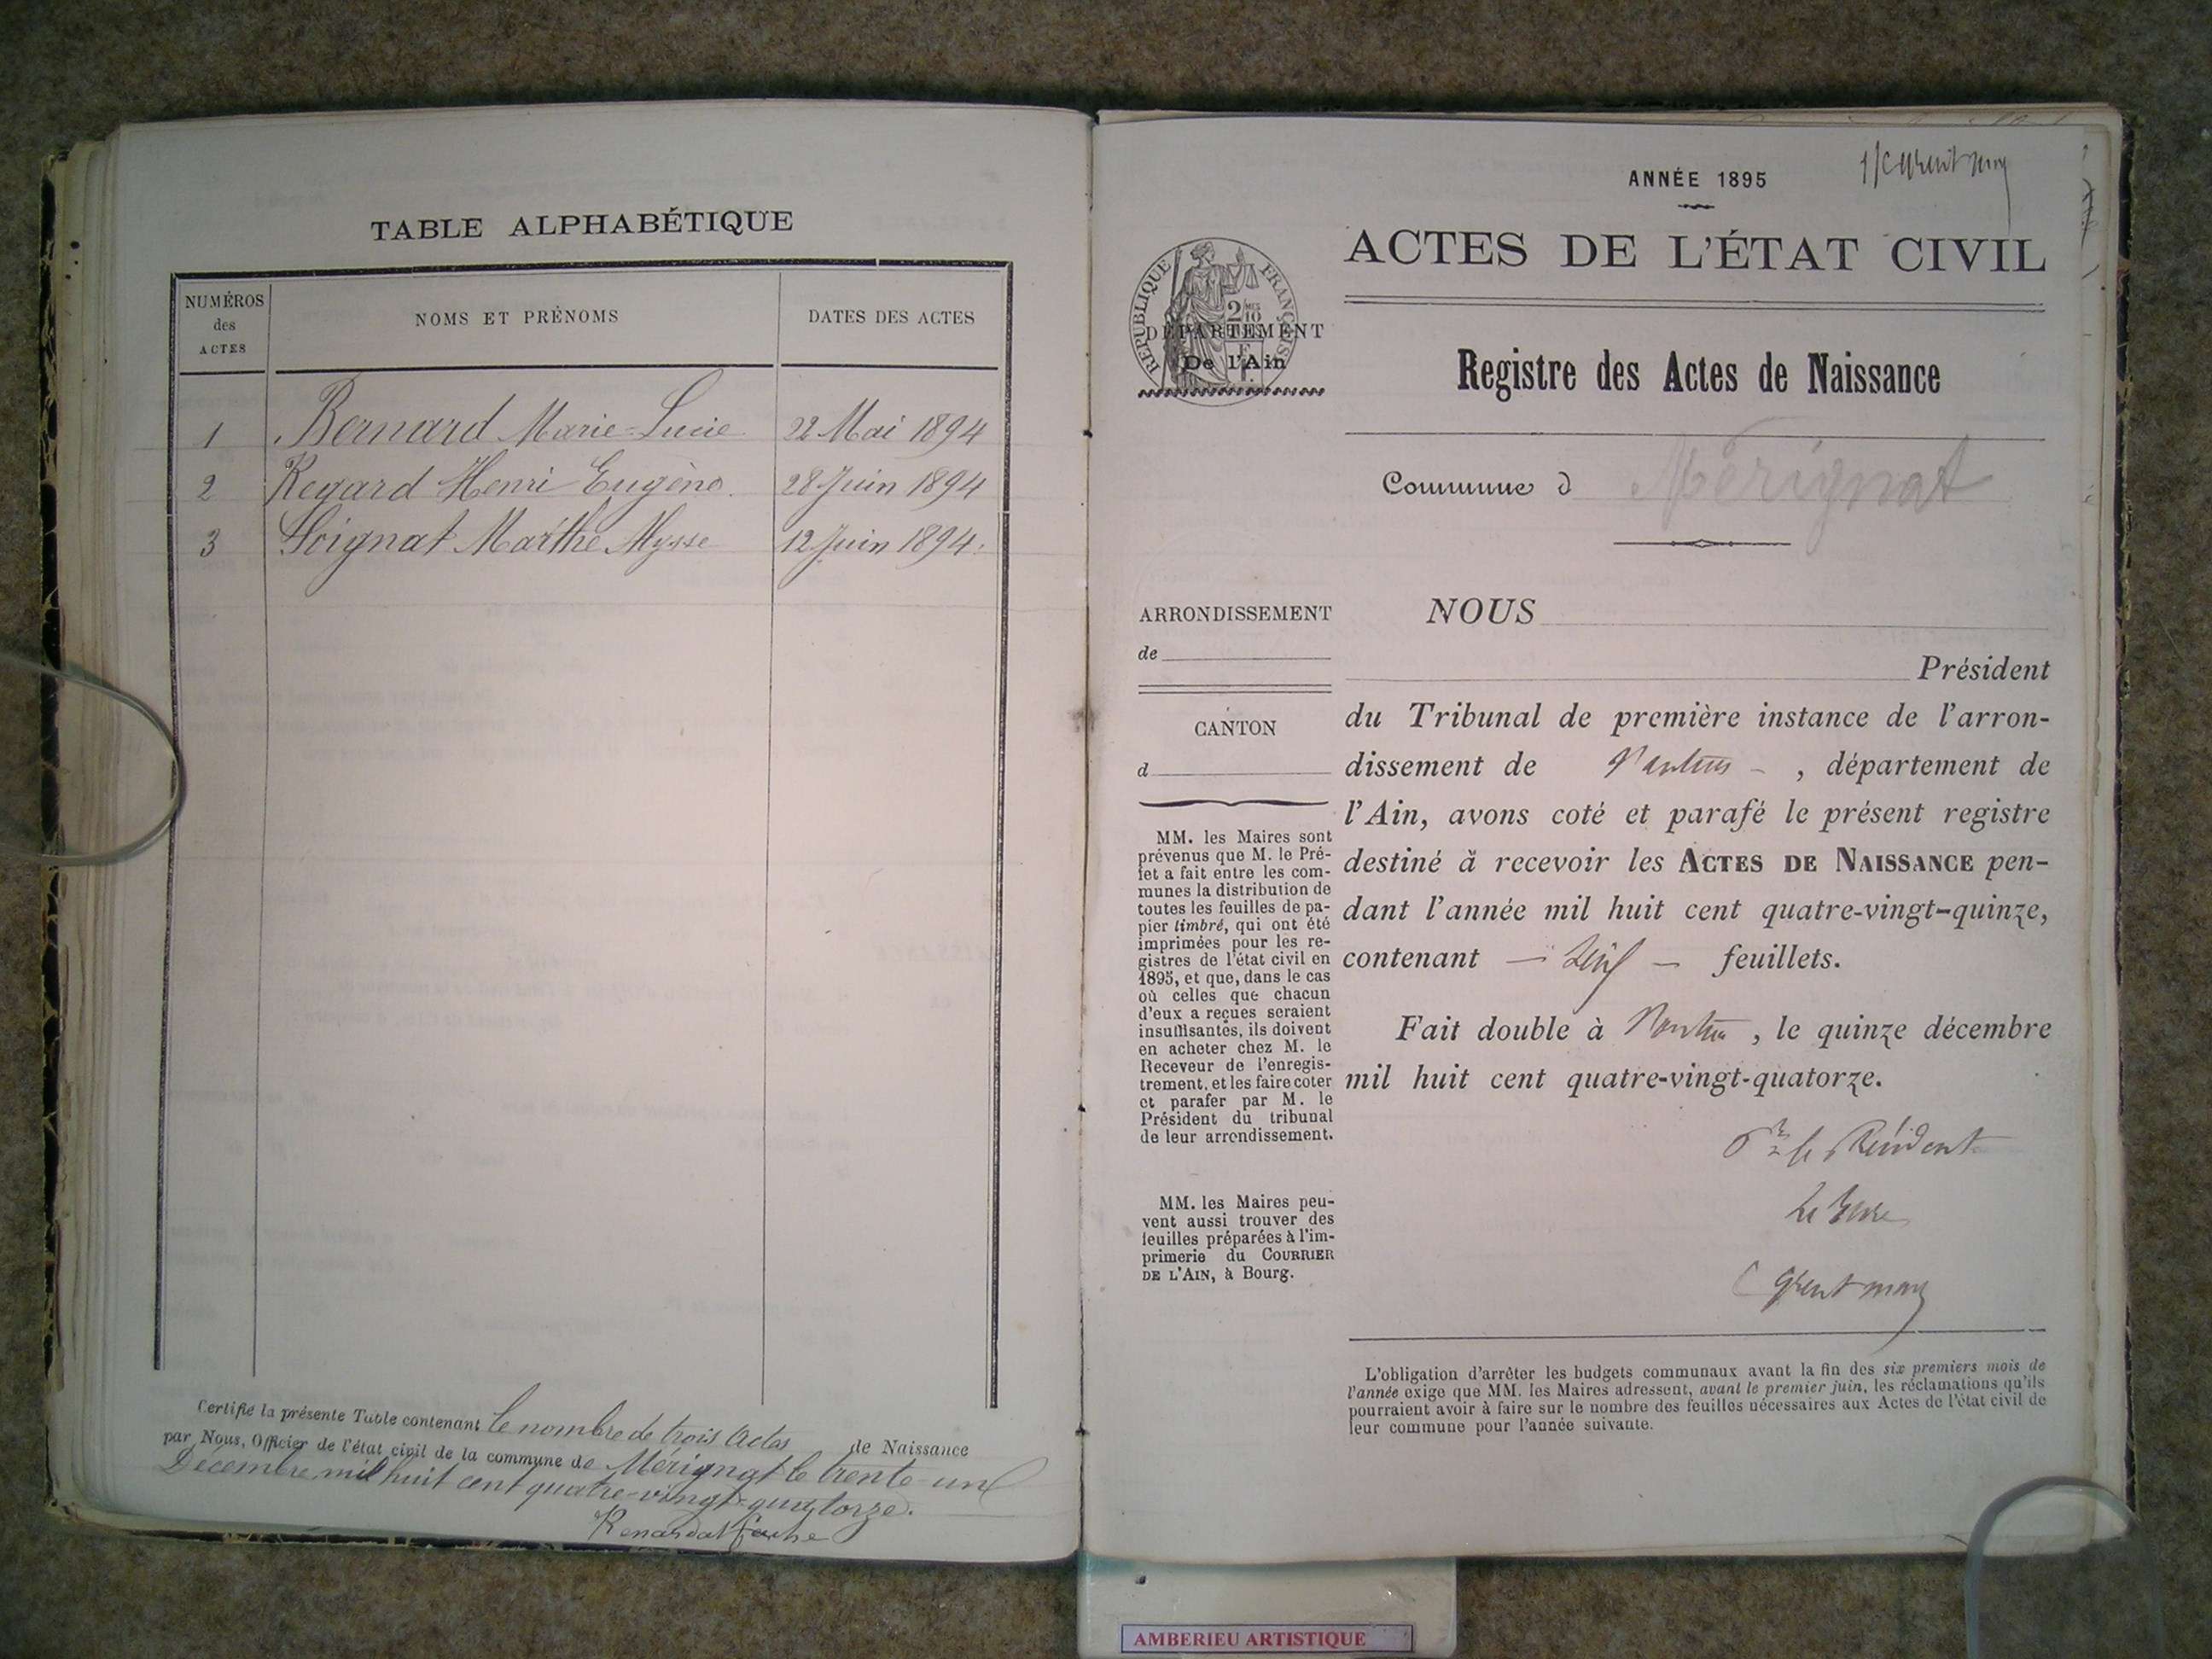 TABLE ALPHABÉTIQUE
NUMÉROS
des
ACTES
NOMS ET PRÉNOMS
DATES DES ACTES
1 Bernard Marie-Lucie 22 Mai 1894
2 Regard Henri Eugène 28 Juin 1894
3 Soignat Marthe 12 Juin 1894
Certifié la présente Table contenant le nombre de trois Actes de Naissance
par Nous, Officier de l'état civil de la commune de Mérignat le trente-un
Décembre mil huit cent quatre-vingt-quatorze.
ANNÉE 1895
ACTES DE L'ÉTAT CIVIL
RÉPUBLIQUE FRANÇAISE
DÉPARTEMENT
De l'Ain
Registre des Actes de Naissance
Commune d Mérignat
ARRONDISSEMENT
de
CANTON
d
MM. les Maires sont
prévenus que M. le Pré-
fet a fait entre les com-
munes la distribution de
toutes les feuilles de pa-
pier timbré, qui ont été
imprimées pour les re-
gistres de l'état civil en
1895, et que, dans le cas
où celles que chacun
d'eux a reçues seraient
insuffisantes, ils doivent
en acheter chez M. le
Receveur de l'enregis-
trement, et les faire coter
et parafer par M. le
Président du tribunal
de leur arrondissement.
MM. les Maires peu-
vent aussi trouver des
feuilles préparées à l'im-
primerie du COURRIER
DE L'AIN, à Bourg.
NOUS
Président
du Tribunal de première instance de l'arron-
dissement de Nantua , département de
l'Ain, avons coté et parafé le présent registre
destiné à recevoir les ACTES DE NAISSANCE pen-
dant l'année mil huit cent quatre-vingt-quinze,
contenant feuillets.
Fait double à Nantua , le quinze décembre
mil huit cent quatre-vingt-quatorze.
Pr le Président
L'obligation d'arrêter les budgets communaux avant la fin des six premiers mois de
l'année exige que MM. les Maires adressent, avant le premier juin, les réclamations qu'ils
pourraient avoir à faire sur le nombre des feuilles nécessaires aux Actes de l'état civil de
leur commune pour l'année suivante.
AMBERIEU ARTISTIQUE